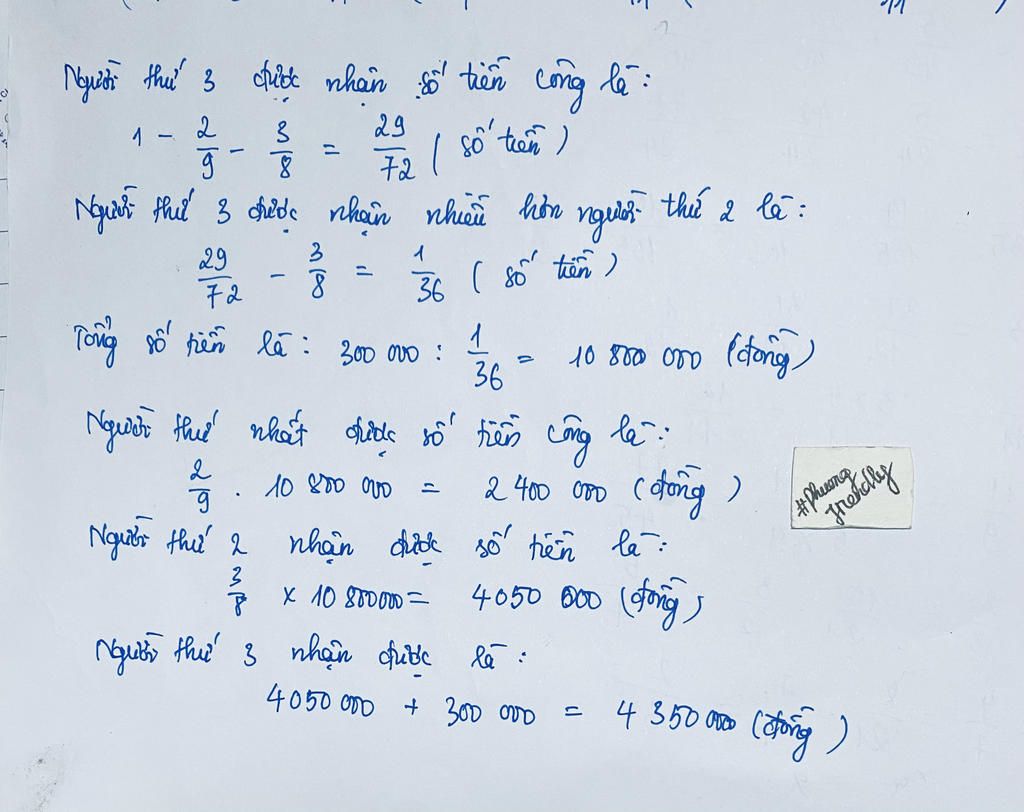 Người thứ 3 được nhận số tiền công là:
1 - 2/9 - 3/8 = 29/72 ( số tiền )
Người thứ 3 được nhận nhiều hơn người thứ 2 là:
29/72 - 3/8 = 1/36 ( số tiền )
Tổng số tiền là: 300 000 : 1/36 = 10 800 000 (đồng)
Người thứ nhất được số tiền công là:
2/9 . 10 800 000 = 2 400 000 (đồng)
Người thứ 2 nhận được số tiền là:
3/8 x 10 800000 = 4050 000 (đồng)
Người thứ 3 nhận được là:
4050 000 + 300 000 = 4 350 000 (đồng)
#phuong